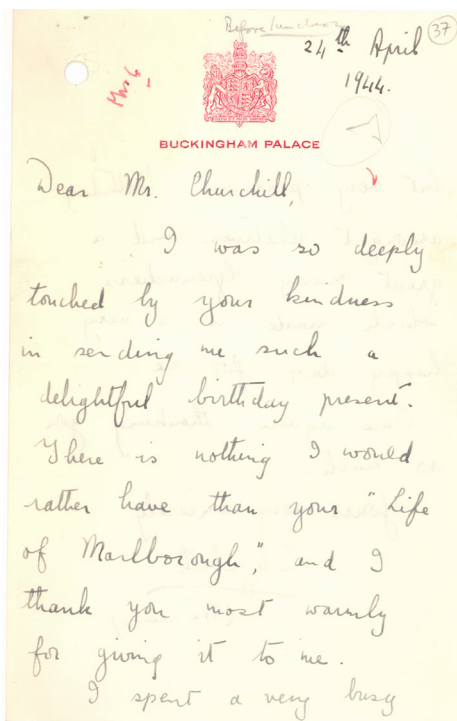 Before luncheon
37
24th April
1944.
BUCKINGHAM PALACE
Dear Mr. Churchill,
I was so deeply
touched by your kindness
in sending me such a
delightful birthday present.
There is nothing I would
rather have than your "Life
of Marlborough," and I
thank you most warmly
for giving it to me.
I spent a very busy